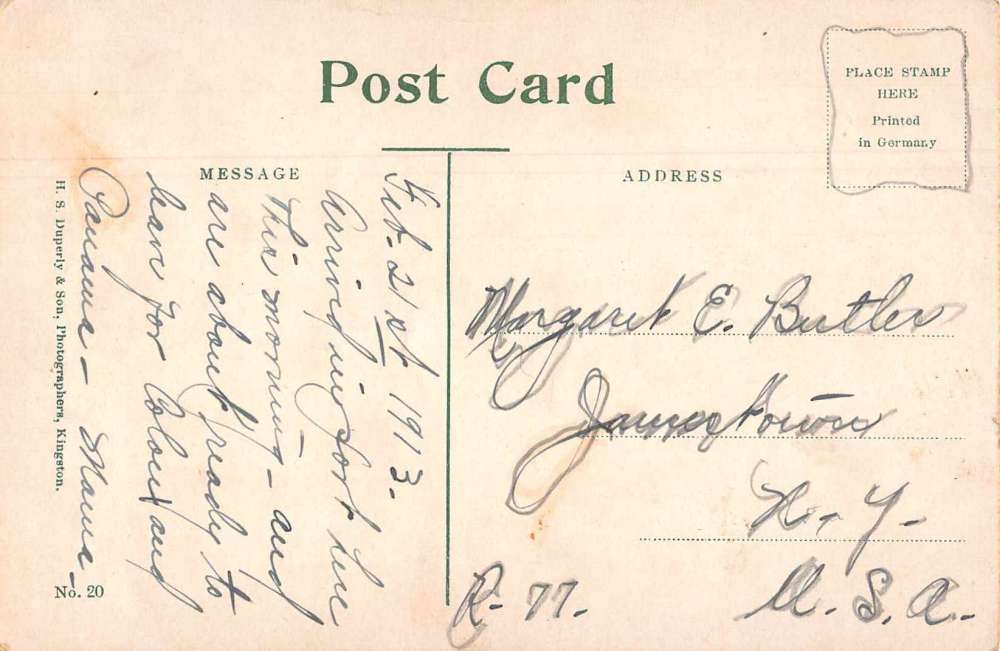 Post Card
PLACE STAMP
HERE
Printed
in Germany
MESSAGE
ADDRESS
Feb. 21st 1913.
Arrived in port here
this morning - and
are about ready to
leave for Colon and
Panama - Mama -
Margaret E. Butler
Jamestown
N. Y.
U. S. A.
R- 77.
H. S. Duperly & Son, Photographers, Kingston.
No. 20